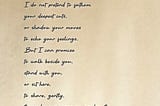 I do not pretend to fathom
your deepest cuts,
or shadow your msses
to echo your feelings.
But I can promise
to walk beside you,
stand with you,
or sit here,
to share, gently.